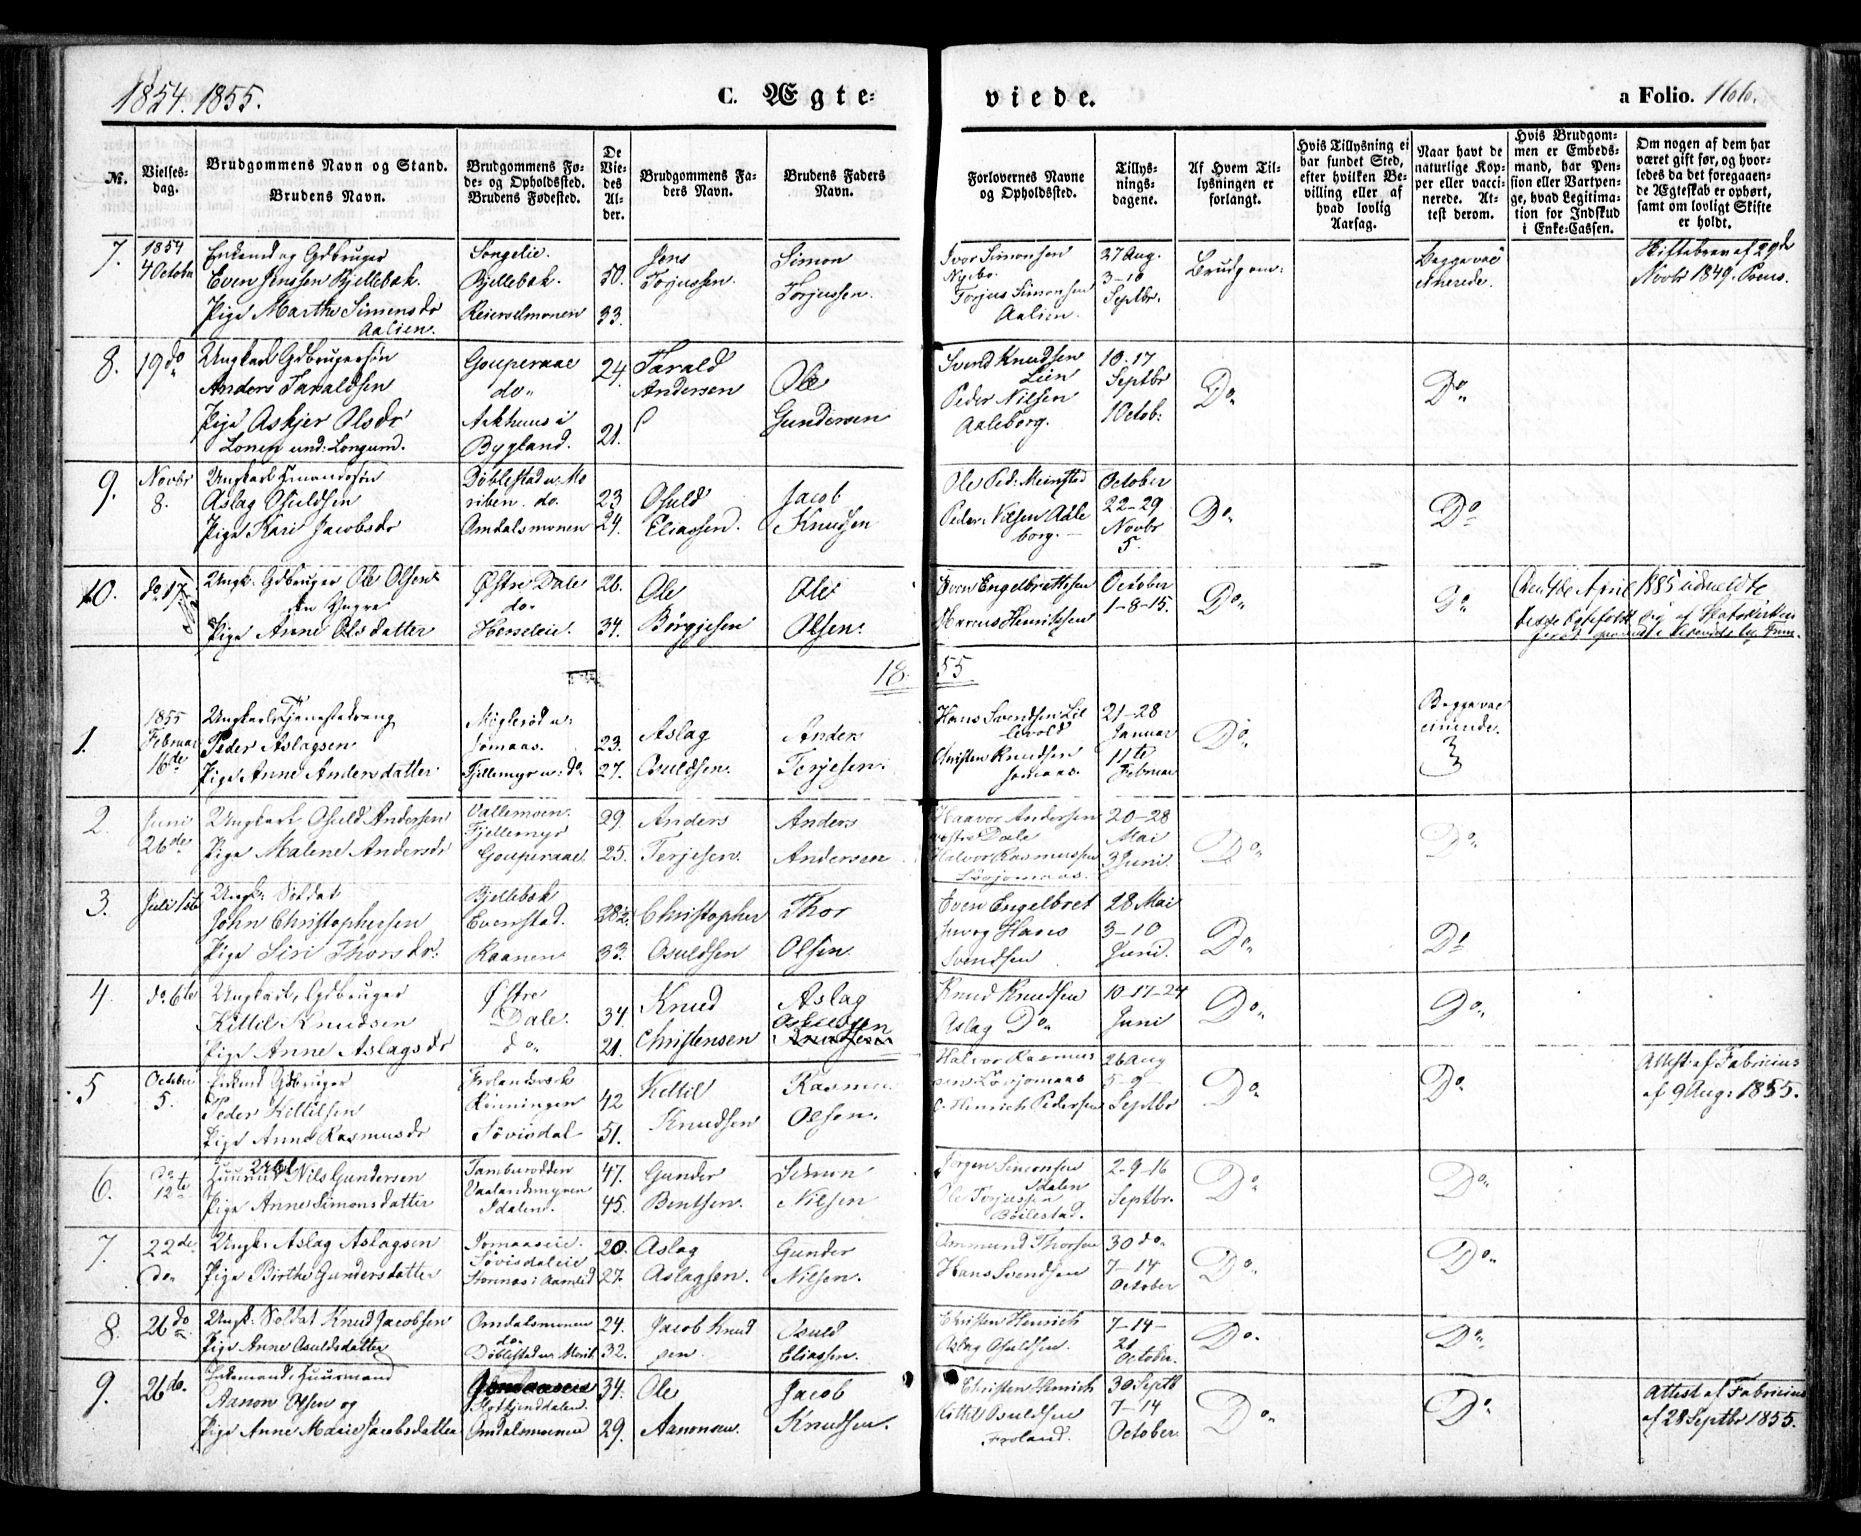 1854. 1855.
C. Ægte-
viede.
a Folio. 166.
No.
Vielses-
dag.
Brudgommens Navn og Stand.
Brudens Navn.
Brudgommens Fø-
de- og Opholdssted.
Brudens Fødested.
De
Vie-
des
Al-
der.
Brudgommens Fa-
ders Navn.
Brudens Faders
Navn.
Forlovernes Navne
og Opholdssted.
Tillys-
nings-
dagene.
Af Hvem Til-
lysningen er
forlangt.
Hvis Tillysning ei
har fundet Sted,
efter hvilken Be-
villing eller af
hvad lovlig
Aarsag.
Naar havt de
naturlige Kop-
per eller vacci-
nerede. At-
test derom.
Hvis Brudgom-
men er Embeds-
mand, har Pen-
sion eller Vartpen-
ge, hvad Legitima-
tion for Indskud
i Enke-Cassen.
Om nogen af dem har
været gift før, og hvor-
ledes da det foregaaen-
de Ægteskab er ophørt,
samt om lovligt Skifte
er holdt.
7.
1854
4 October
Enkemd og Gdbruger
Even Jenssen Bjellebek.
Pige Marthe Simensdr
Aalien.
Songelie.
Bjellebek.
Reierselmonen
50.
33.
Jens
Torjussen.
Simon
Torjussen.
Ivor Simonsen
Nyebo.
Torjus Simonsen
Aalien.
27 Aug.
3-10
Septbr.
Brudgom:
Begge vac
cinerede.
Skiftebrev af 29de
Novbr 1849.
8.
19 do
Ungkarl Gdbrugersøn
Anders Taraldsen
Pige Askjer Olsdr
Lonen und: Longum.
Gouperaae
do
Askhuus i
Bygland.
24.
21.
Tarald
Andersen
Ole
Gundersen
Svend Knudsen
Lien
Peder Nilsen
Aaleborg.
10-17
Septbr
1 Octob:
Do
Do
9.
Novbr
8.
Ungkarl
Aslag Osuldsen
Pige Kari Jacobsdr
Døblestad u. Mo
riben. do.
Omdalsmonen
23
24.
Osuld
Eliassen.
Jacob
Knudsen
Ole Ped: Meinstad
Peder Nilsen Aale
borg.
October
22-29
Novbr
5.
Do
Do
10.
do 17
Ungk. Gdbruger Ole Olsen
den Yngre
Pige Anne Olsdatter
Østre Dale
do
Heieleie.
26.
34.
Ole
Børgjesen
Ole
Olsen.
Even Engelbrettsen
Marcus Henrikssen
October
1-8-15.
Do
Do
Den 4de April 1885 udmeldte
dette Ægtefolk sig af Statskirken
1855.
1.
1855
Februar
16de
Ungkarl, Tjenestedreng
Peder Aslagsen
Pige Anne Andersdatter
Miglerød u:
Jomaas.
Fjellemyr u: do
23.
27.
Aslag
Osuldsen.
Anders
Terjesen.
Hans Svendsen Lil
levold
Christen Knudsen
Jomaas.
21-28
Januar
11te
Februar
Do
Begge vac
cinerede.
2.
Juni
26de
Ungkarl Osuld Andersen
Pige Malene Andersdr
Vallemoen.
Fjellemyr
Gouperaae.
29.
25.
Anders
Terjesen.
Anders
Andersen
Haavor Andersen
østre Dale
Halvor Rasmussen
Løvjomaas.
20-28
Mai
3 Juni.
Do
Do
3.
Juli 1ste
Ungk. Soldat
John Christophersen
Pige Siri Thorsdr:
Bjellebek
Evenstad.
Raanen
33.
Christopher
Osuldsen
Thor
Olsen.
Even Engelbret
sen og Hans
Svendsen
28 Mai
3-10
Juni.
Do
Do
4.
do 6te
Ungkarl, Gdbruger
Kittil Knudsen
Pige Anne Aslagsdr
Østre
Dale.
do
34.
21.
Knud
Christensen
Aslag
Osuldsen
Knudsen
Knud Knudsen
Aslag Do
10-17-24
Juni
Do
Do
5
October
5.
Enkemd Gdbruger
Peder Kittilsen
Pige Anne Rasmusdr
Frolandsverk
Rønningen
Løvisdal
42
51.
Kittil
Knudsen
Rasmus
Olsen.
Halvor Rasmus
sen Løvjomaas
C. Henrich Pedersen
26 Aug
5-9
Septbr
Do
Do
Attest af Fabricius
af 9 Aug: 1855.
6.
do
12te
Nils Gundersen
Pige Anne Simonsdatter
Tamburødden
Vaalandsmyren
Idalen.
47.
45.
Gunder
Bentsen.
Simon
Nilsen
Jørgen Simonsen
Idalen
Ole Torjussen
Bøilestad.
2-9-16
Septbr.
Do
Do
7.
22de
do
Ungk. Aslag Aslagsen
Pige Birthe Gundersdatter
Jomaaseie.
Løvisdaleie
Stornæs i Aamlid
20.
27.
Aslag
Aslagsen.
Gunder
Nilsen.
Ammund Thorsen
Hans Svendsen
30 do
7-14
October
Do
Do
8.
26 do
Ungk. Soldat Knud Jacobsen
Pige Anne Osuldsdatter
Omdalsmonen
do
Døblestad u. Morib.
24.
32.
Jacob Knud
sen.
Osuld
Eliassen.
Christen Henrich
Aslag Osuldsen.
7-14-
21
October.
Do
Do
9.
26 do.
Enkemand, Huusmand
Aanon Olsen og
Pige Anne Marie Jacobsdatter
Omdalsmoenen
34.
29.
Ole
Aanonsen.
Jacob
Knudsen.
Christen Henrich
Kittil Osuldsen
Froland.
30 Septb
7-14
October
Do
Do
Attest af Fabricius
af 28 Septbr 1855.